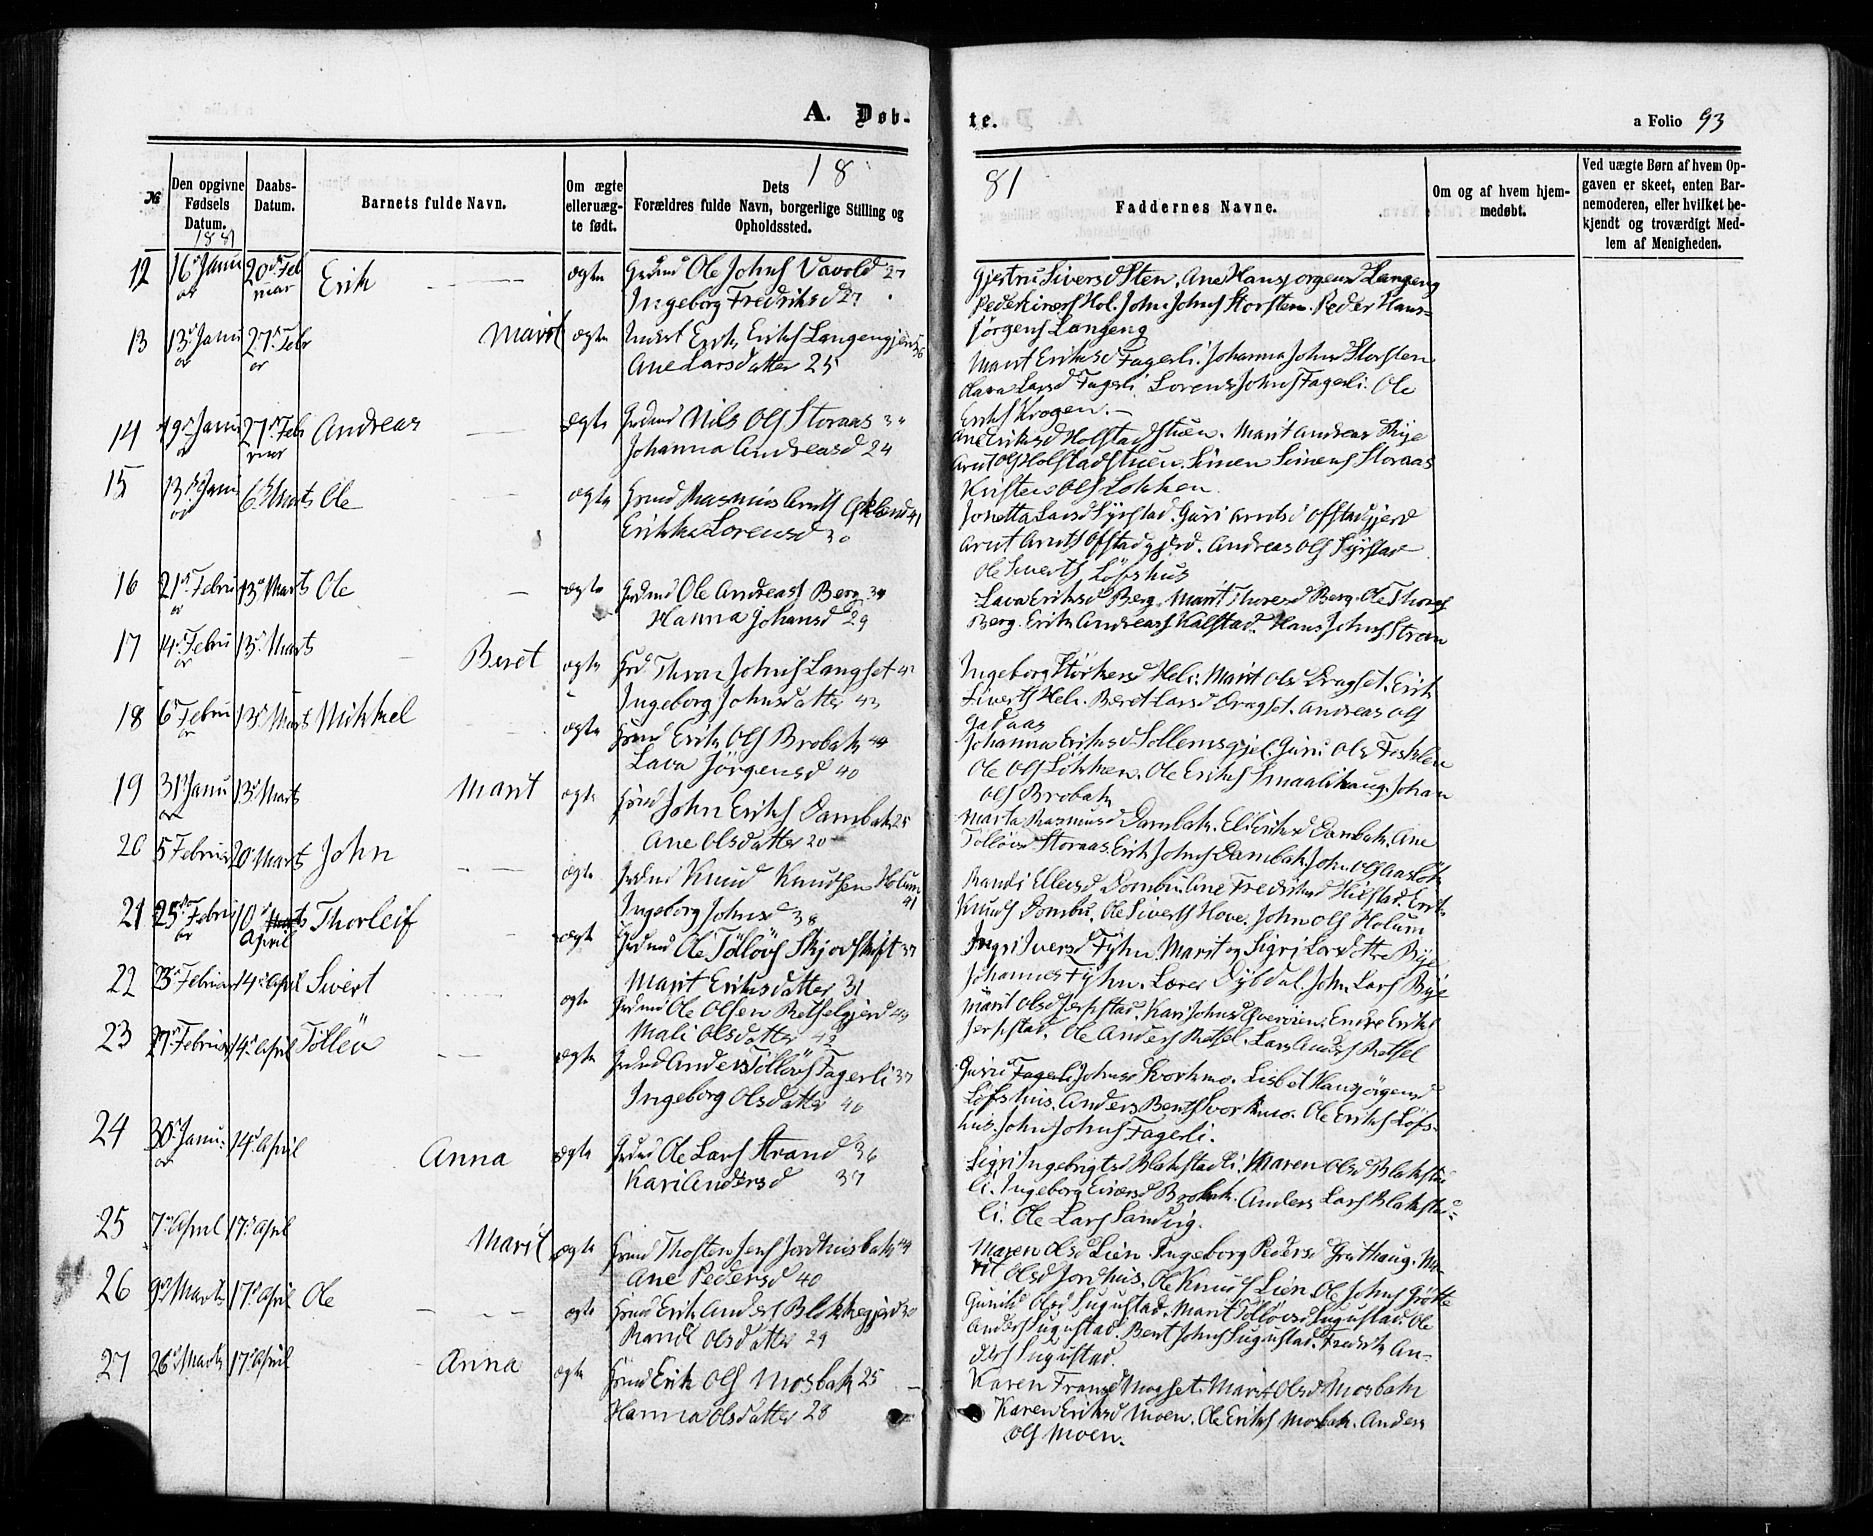 A. Døb-
te.
a Folio 93
18
81
№
Den opgivne Fødsels Datum.
1881
Daabs-Datum.
Barnets fulde Navn.
Om ægte eller uæg-te født.
Dets Forældres fulde Navn, borgerlige Stilling og Opholdssted.
Faddernes Navne.
Om og af hvem hjem-medøbt.
Ved uægte Børn af hvem Op-gaven er skeet, enten Bar-nemoderen, eller hvilket be-kjendt og troværdigt Med-lem af Menigheden.
12 16 Januar 20 Februar Erik ægte Ole Johns Vavold 27
Ingeborg Fredriksd 27
Gjertru Siversd Sten. Ane Hansjørgensd Langeng
Hol. John Johns Storsten. Peder Hans-
jörgens Langeng
13 13 Januar 27 Febr Marit ægte Erik Eriks
Ane Larsdatter 25
Marit Eriksd Fagerli. Johanna Johnsd Storsten
Larsd Fagerli. Lorens Johns Fagerli. Ole
Eriks Krogen.
14 19 Januar 27 Februar Andreas ægte Nils Ols Storaas
Johanna Andreasd 24
Ane Eriksd Holstadstuen. Marit Andreas Rye
Arnt Ols Holstadstuen. Simen Simens Storaas
Kristen Ols Løkken.
15 13 Januar 6 Marts Ole ægte Rasmus Arnts 41
Erikka Lorensd 30
Jonetta Larsd Syrstad. Guri Arntsd Ofstadgjerd
Arnt Arnts Ofstadgjerd. Andreas Ols Syrstad
Ole Siverts Löfshus
16 21 Februar 13 Marts Ole ægte Ole Andreas Berg 34
Hanna Johansd 29
Lava Eriksd Berg. Marit Thoresd Berg. Ole Thores
Berg. Erik Andreas Kalstad. Hans Johns Strøm
17 14 Februar 13 Marts Beret ægte Johns Langset
Ingeborg Johnsdatter 43
Ingeborg Størkersd Heli. Marit Olsd Dragset. Erik
Siverts Heli. Beret Larsd Dragset. Andreas Ols
18 6 Februar 13 Marts Mikkel ægte Erik Ols Brobak 44
Lava Jörgensd 40
Johanna Eriksd Sollemsgjel. Guri Olsd
Ole Ols Løkken. Ole Eriks Smaalihaug. Johan
Ols Brobak
19 31 Januar 13 Marts Marit ægte John Eriks Dambak 25
Ane Olsdatter 20
Marta Rasmusd Dambak. Eli Eriksd Dambak. Ane
Tølløvsd Storaas. Erik Johns Dambak. John Ols
20 5 Februar 20 Marts John ægte Knud Knudsen Holum
41
Ingeborg Johnsd 38
Randi Ellevsd Dombu. Ane Fredriksd Hilstad. Erik
Knuds Dombu. Ole Siverts Hove. John Ols Holum
21 25 Februar 10 Marts April Thorleif ægte Ole Tölløvs Skjodskift 37
Marit Eriksdatter 31
Ingri Iversd Fyhn. Marit og Sigri Larsdøttre Rye
Johannes Fyhn. Dybdal. John Lars Rye
22 23 Februar 14 April Sivert ægte Ole Olsen Retselgjerd
Mali Olsdatter 42
Marit Olsd Jerpstad. Kari Johnsd Endre Eriks
Jerpstad. Ole Anders Retsel. Lars Anders Retsel
23 27 Februar 14 April Töllev ægte Anders Tölløvs Fagerli 37
Ingeborg Olsdatter 40
Guri Fagerli Johnsd Svorkmo. Lisbet Hansjörgensd
Löfshus. Anders Bents Svorkmo. Ole Eriks Löfs-
hus. John Johns Fagerli.
24 30 Januar 14 April Anna ægte Ole Lars Strand 36
Kari Andersd 37
Sigri Ingebrigtsd Blakstadli. Maren Olsd Blakstad
li. Ingeborg Brobak. Anders Lars Blakstad-
li. Ole Lars Sandvig.
25 7 April 17 April Marit ægte Thosten Jens Jordhusbak 44
Ane Pedersd 40
Maren Olsd Lien. Ingeborg Pedersd Gruthaug. Ma-
rit Olsd Jordhus. Ole Knuds Lien. Ole Johns Grötte
26 9 Marts 17 April Ole ægte Erik Anders Blokkegjerd 30
Randi Olsdatter 29
Gunild Olsd Sugustad. Marit Tölløvsd Sugustad. Ole
Anders Sugustad. Bent Johns Sugustad. Fredrik An-
ders Sugustad.
27 26 Marts 17 April Anna ægte Erik Ols Mosbak 25
Hanna Olsdatter 28
Karen Fransd Mogset. Marit Olsd Mosbak
Karen Eriksd Moen. Ole Eriks Mosbak. Anders
Ols Moen.